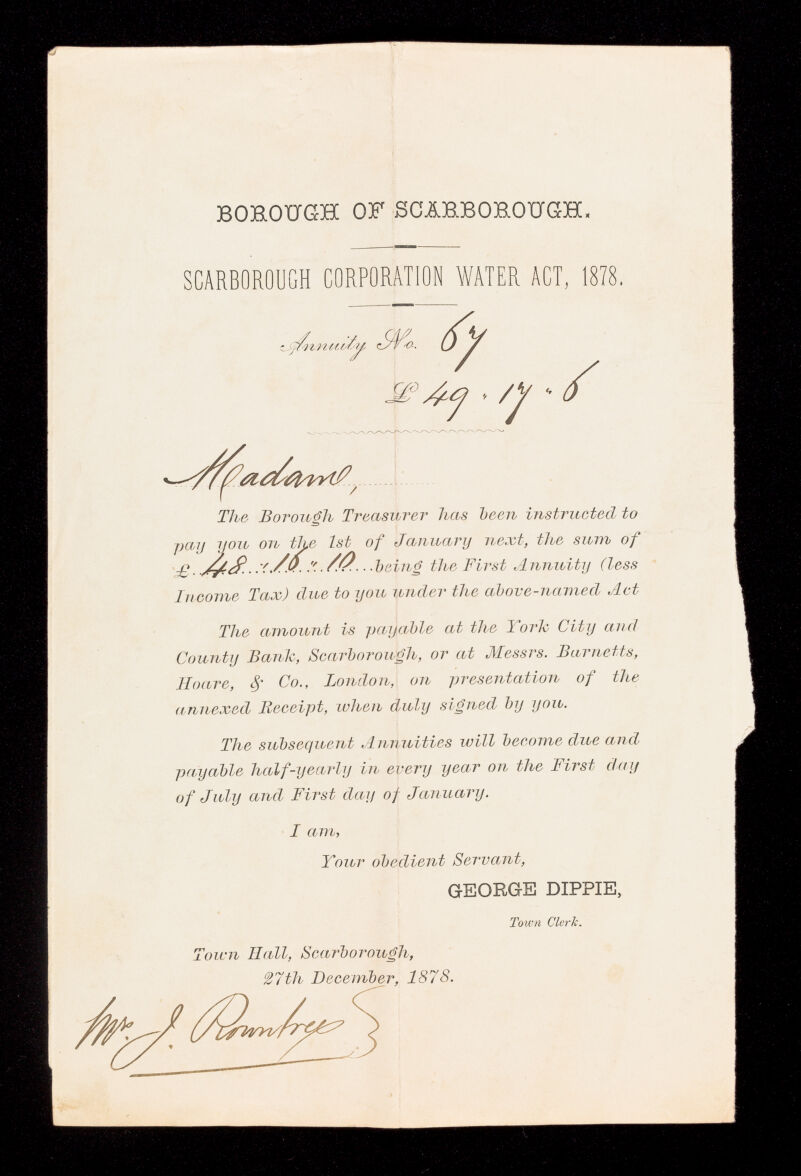 BOROUGH OF SCARBOROUGH.
SCARBOROUGH CORPORATION WATER ACT, 1878.
Annuity No. 67
£ 49 " 17 " 6
Madam,
The Borough Treasurer has been instructed to
pay you on the 1st of January next, the sum of
£...48..."..16..."..10....being the First Annuity (less
Income Tax) due to you under the above-named Act
The amount is payable at the York City and
County Bank, Scarborough, or at Messrs. Barnetts,
Hoare, & Co., London, on presentation of the
annexed Receipt, when duly signed by you.
The subsequent Annuities will become due and
payable half-yearly in every year on the First day
of July and First day of January.
I am,
Your obedient Servant,
GEORGE DIPPIE,
Town Clerk.
Town Hall, Scarborough,
27th December, 1878.
Mrs. J. Rowntree